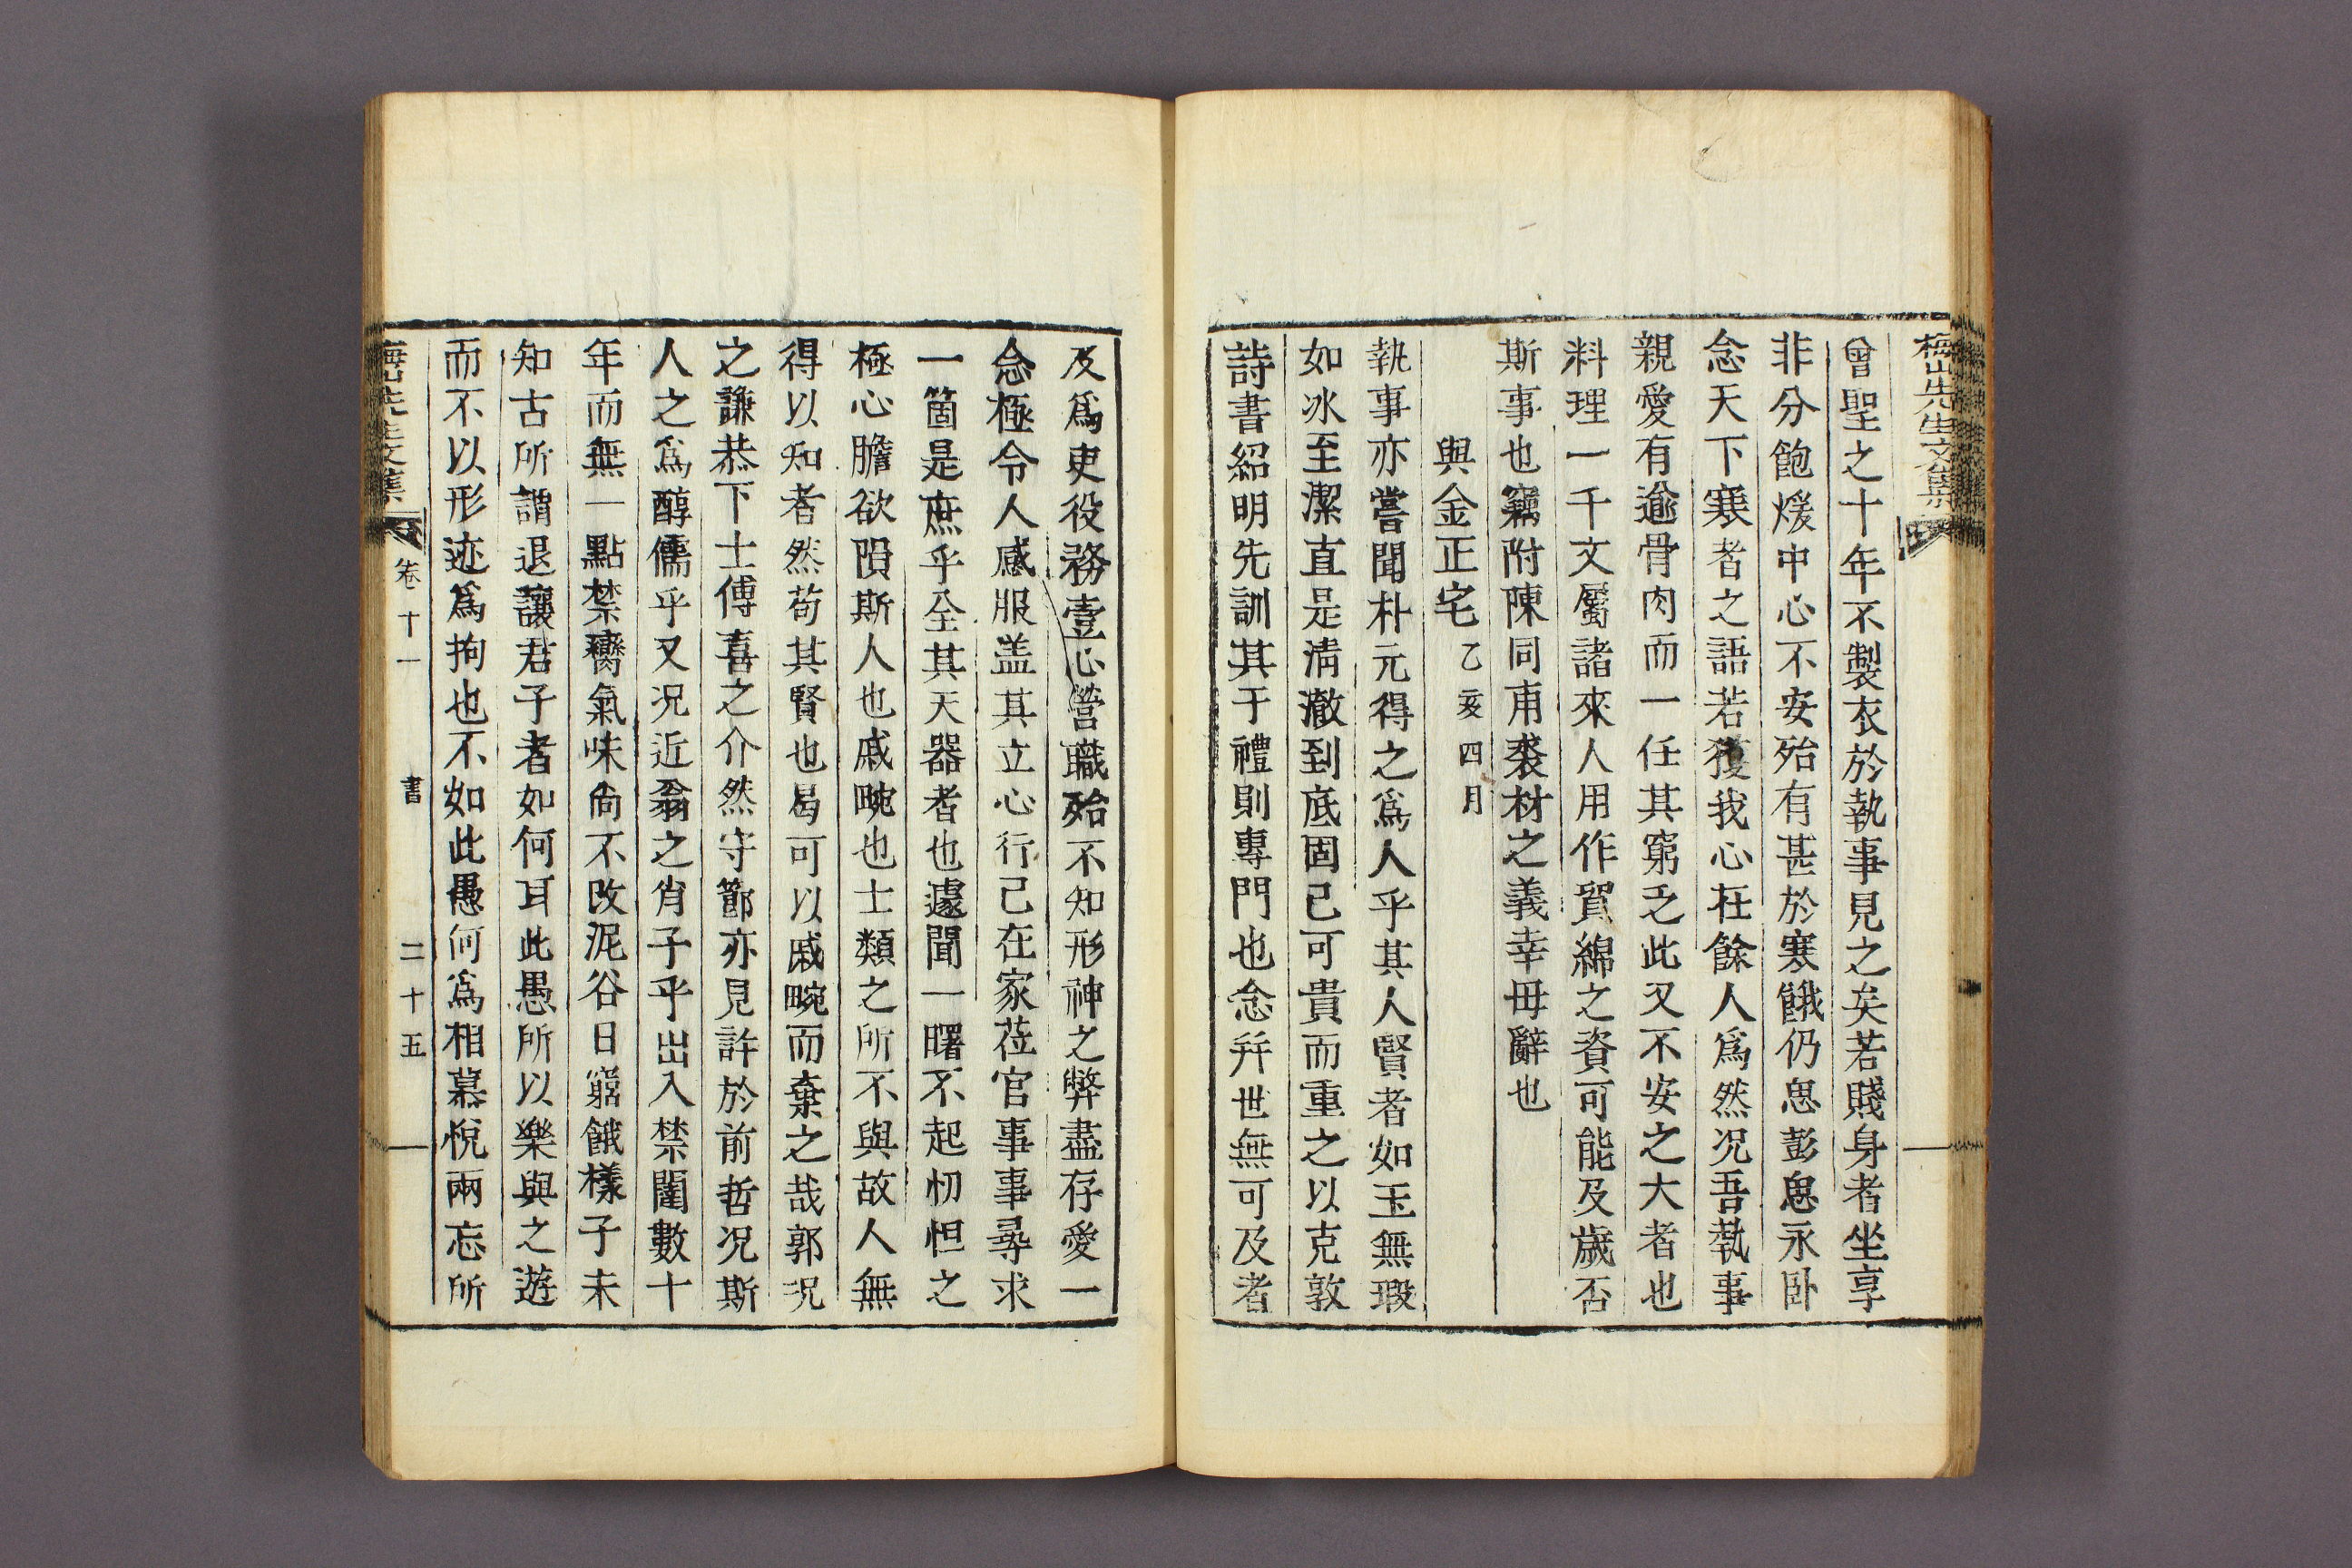 梅山先生文集
曾聖之十年不製衣於執事見之矣若賤身者坐享
非分飽煖中心不安殆有甚於寒餓仍思彭思永卧
念天下寒者之語若獲我心在餘人爲然况吾執事
親愛有逾骨肉而一任其窮乏此又不安之大者也
料理一千文屬諸來人用作貿綿之資可能及歲否
斯事也竊附陳同甫裘材之義幸毋辭也
與金正宅乙亥四月
執事亦嘗聞朴元得之爲人乎其人賢者如玉無瑕
如冰至潔直是淸澈到底固已可貴而重之以克敦
詩書紹明先訓其于禮則專門也念幷世無可及者
及爲吏役務壹心營職殆不知形神之弊盡存愛一
念極令人感服盖其立心行己在家莅官事事尋求
一箇是庶乎全其天器者也遽聞一曙不起忉怛之
極心膽欲隕斯人也戚畹也士類之所不與故人無
得以知者然苟其賢也曷可以戚畹而棄之哉郭況
之謙恭下士傅喜之介然守節亦見許於前哲况斯
人之爲醇儒乎又况近翁之肖子乎出入禁闥數十
年而無一點禁臠氣味尙不改泥谷日窮餓樣子未
知古所謂退讓君子者如何耳此愚所以樂與之遊
而不以形迹爲拘也不如此愚何爲相慕悅兩忘所
梅山先生文集
卷十一
書
二十五